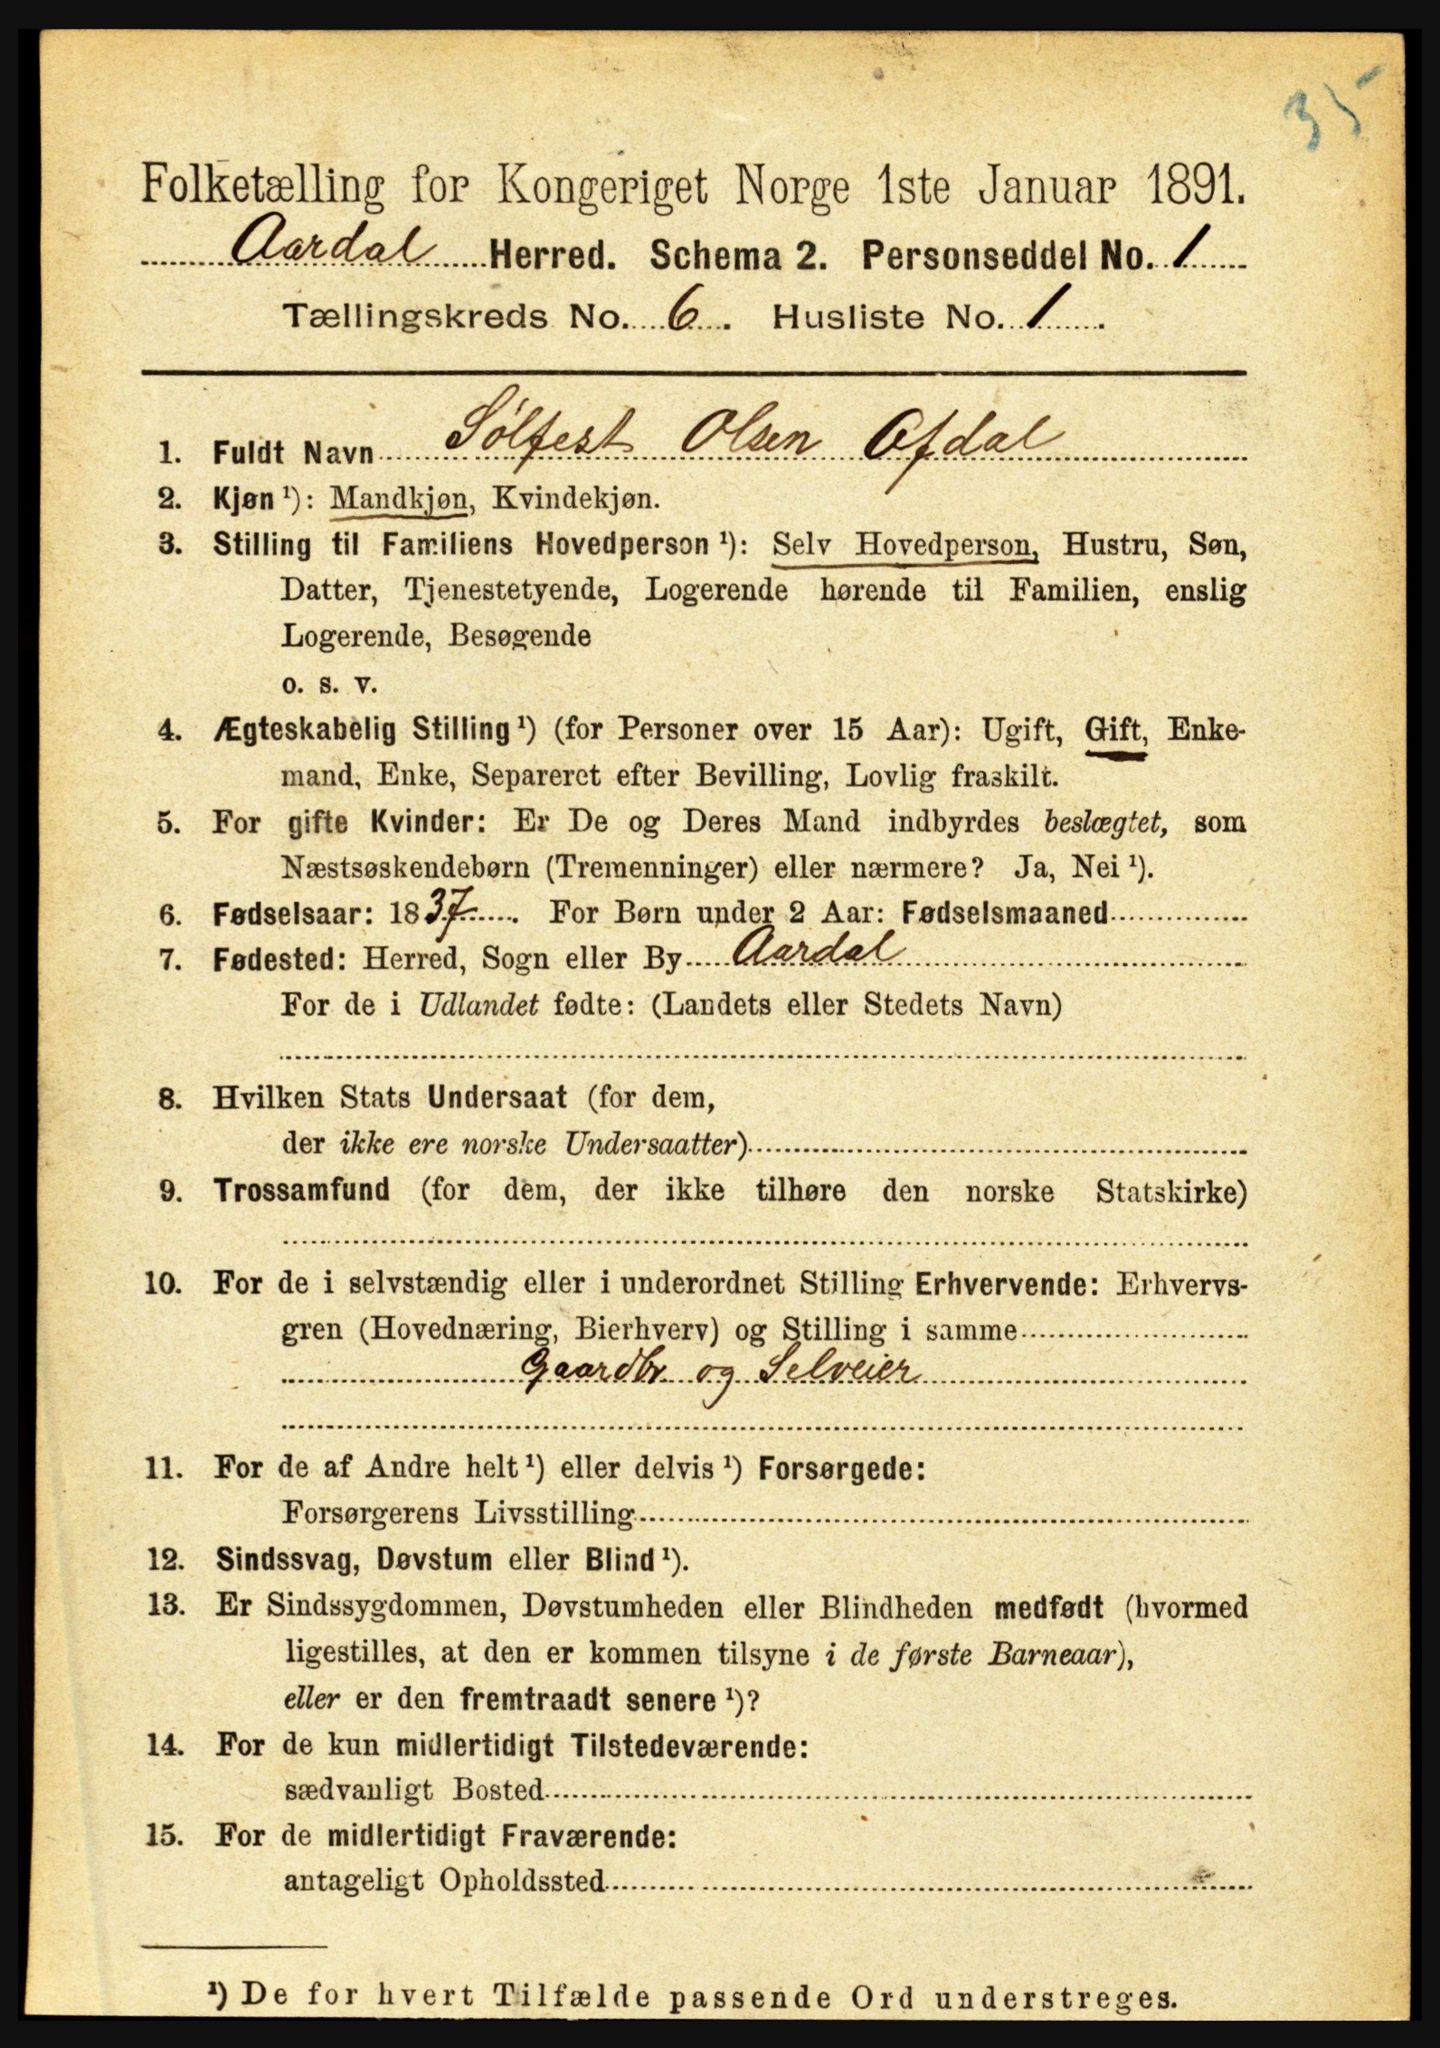 35
Folketælling for Kongeriget Norge 1ste Januar 1891.
Aardal Herred. Schema 2. Personseddel No. 1
Tællingskreds No. 6. Husliste No. 1.
1. Fuldt Navn Sølfest Olsen Afdal
2. Kjøn ¹): Mandkjøn, Kvindekjøn.
3. Stilling til Familiens Hovedperson ¹): Selv Hovedperson, Hustru, Søn,
Datter, Tjenestetyende, Logerende hørende til Familien, enslig
Logerende, Besøgende
o. s. v.
4. Ægteskabelig Stilling ¹) (for Personer over 15 Aar): Ugift, Gift, Enke-
mand, Enke, Separeret efter Bevilling, Lovlig fraskilt.
5. For gifte Kvinder: Er De og Deres Mand indbyrdes beslægtet, som
Næstsøskendebørn (Tremenninger) eller nærmere? Ja, Nei ¹).
6. Fødselsaar: 1837. For Børn under 2 Aar: Fødselsmaaned
7. Fødested: Herred, Sogn eller By Aardal
For de i Udlandet fødte: (Landets eller Stedets Navn)
8. Hvilken Stats Undersaat (for dem,
der ikke ere norske Undersaatter)
9. Trossamfund (for dem, der ikke tilhøre den norske Statskirke)
10. For de i selvstændig eller i underordnet Stilling Erhvervende: Erhvervs-
gren (Hovednæring, Bierhverv) og Stilling i samme
Gaardbr og Selveier
11. For de af Andre helt ¹) eller delvis ¹) Forsørgede:
Forsørgerens Livsstilling
12. Sindssvag, Døvstum eller Blind ¹).
13. Er Sindssygdommen, Døvstumheden eller Blindheden medfødt (hvormed
ligestilles, at den er kommen tilsyne i de første Barneaar),
eller er den fremtraadt senere ¹)?
14. For de kun midlertidigt Tilstedeværende:
sædvanligt Bosted
15. For de midlertidigt Fraværende:
antageligt Opholdssted
¹) De for hvert Tilfælde passende Ord understreges.